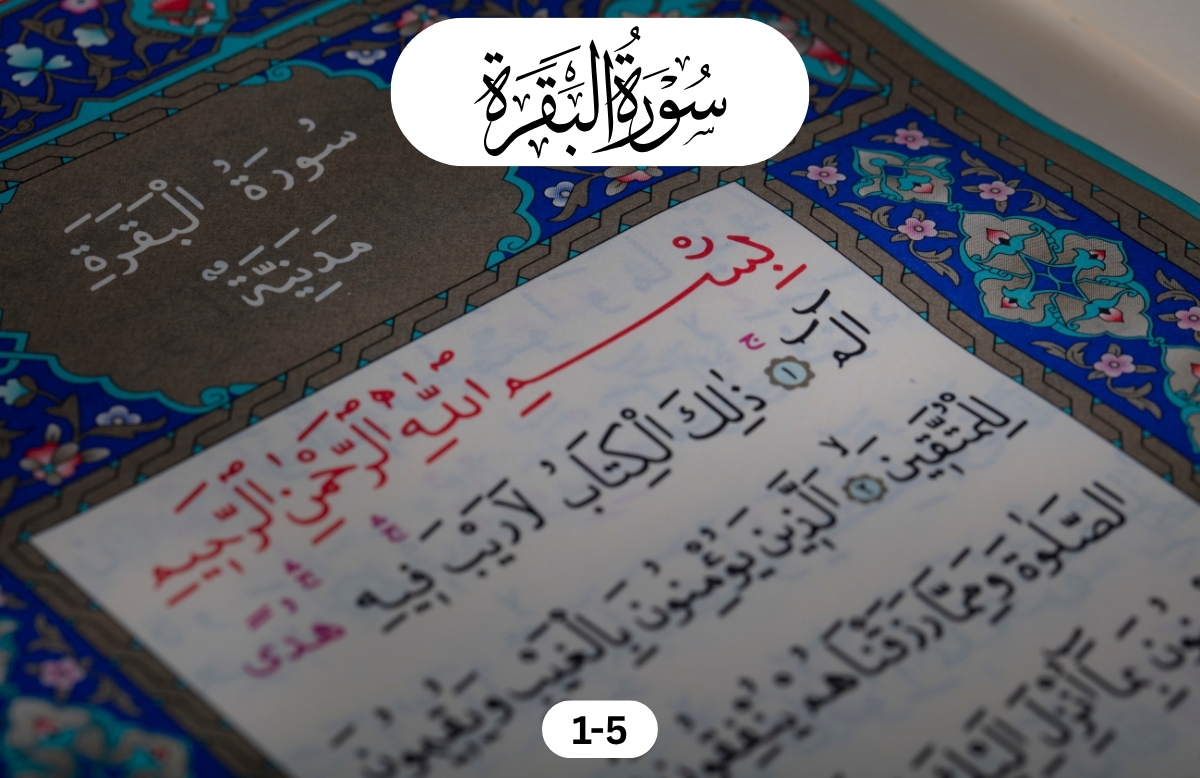 سُوْرَةُ الْبَقَرَة
سُورَةُ الْبَقَرَةِ
مَدِينَةٌ
بِسْــــمِ اللهِ الرَّحْمٰنِ الرَّحِيمِ
الٓمٓ ۚ ١ ذٰلِكَ الْكِتَابُ لَارَيْبَ ۛ فِيهِ ۛ هُدًى
لِلْمُتَّقِينَ ۙ ٢ اَلَّذِينَ يُؤْمِنُونَ بِالْغَيْبِ وَيُقِيمُونَ
الصَّلٰوةَ وَمِمَّا رَزَقْنَاهُمْ يُنْفِقُونَ
بِمَٓا اُنْزِلَ اِلَيْكَ
1-5